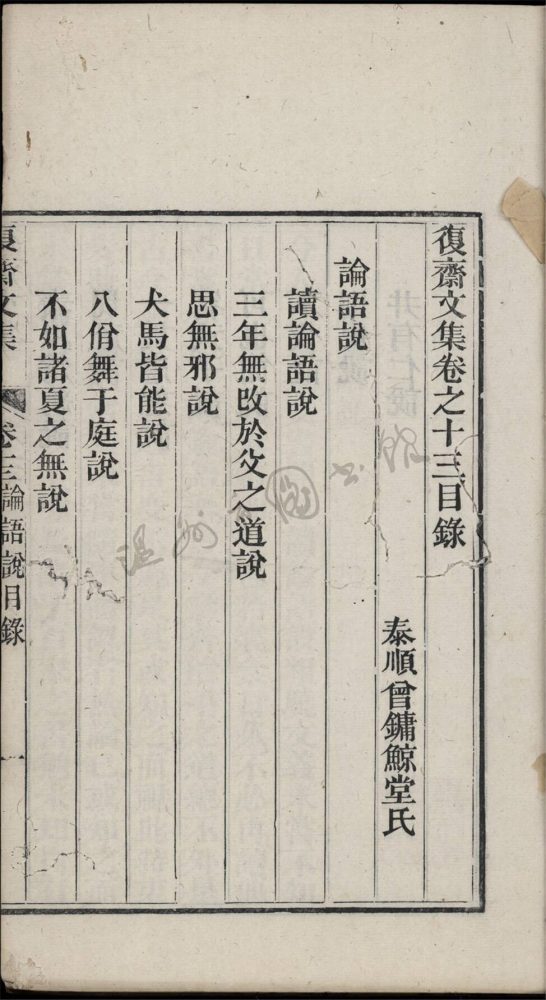 復齋文集卷之十三目錄
泰順曾鏞鯨堂氏
論語說
讀論語說
三年無改於父之道說
思無邪說
犬馬皆能說
八佾舞于庭說
不如諸夏之無說
復齋文集 卷十三論語說目錄 一
溫州 圖書館